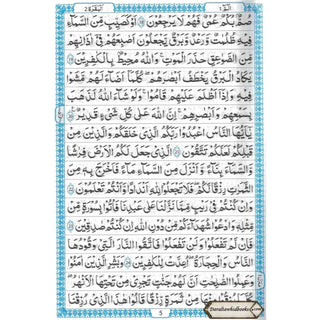 البقرة ٢ الٓمّٓ ١
صُمٌّۢ بُكْمٌ عُمْیٌ فَهُمْ لَا یَرْجِعُوْنَ ﴿۱۸﴾ اَوْ كَصَیِّبٍ مِّنَ السَّمَآءِ
فِیْهِ ظُلُمٰتٌ وَّرَعْدٌ وَّبَرْقٌ ۚ یَجْعَلُوْنَ اَصَابِعَهُمْ فِیْۤ اٰذَانِهِمْ
مِّنَ الصَّوَاعِقِ حَذَرَ الْمَوْتِ ؕ وَاللّٰهُ مُحِیْطٌۢ بِالْكٰفِرِیْنَ ﴿۱۹﴾
یَكَادُ الْبَرْقُ یَخْطَفُ اَبْصَارَهُمْ ؕ كُلَّمَاۤ اَضَآءَ لَهُمْ مَّشَوْا
فِیْهِ ۙ وَاِذَاۤ اَظْلَمَ عَلَیْهِمْ قَامُوْا ؕ وَلَوْ شَآءَ اللّٰهُ لَذَهَبَ
بِسَمْعِهِمْ وَاَبْصَارِهِمْ ؕ اِنَّ اللّٰهَ عَلٰی كُلِّ شَیْءٍ قَدِیْرٌ ﴿۲۰﴾
یٰۤاَیُّهَا النَّاسُ اعْبُدُوْا رَبَّكُمُ الَّذِیْ خَلَقَكُمْ وَالَّذِیْنَ مِنْ
قَبْلِكُمْ لَعَلَّكُمْ تَتَّقُوْنَ ﴿۲۱﴾ الَّذِیْ جَعَلَ لَكُمُ الْاَرْضَ فِرَاشًا
وَّالسَّمَآءَ بِنَآءً ۪ وَّاَنْزَلَ مِنَ السَّمَآءِ مَآءً فَاَخْرَجَ بِهٖ مِنَ
الثَّمَرٰتِ رِزْقًا لَّكُمْ ۚ فَلَا تَجْعَلُوْا لِلّٰهِ اَنْدَادًا وَّاَنْتُمْ تَعْلَمُوْنَ ﴿۲۲﴾
وَاِنْ كُنْتُمْ فِیْ رَیْبٍ مِّمَّا نَزَّلْنَا عَلٰی عَبْدِنَا فَاْتُوْا بِسُوْرَةٍ مِّنْ
مِّثْلِهٖ ۪ وَادْعُوْا شُهَدَآءَكُمْ مِّنْ دُوْنِ اللّٰهِ اِنْ كُنْتُمْ صٰدِقِیْنَ ﴿۲۳﴾
فَاِنْ لَّمْ تَفْعَلُوْا وَلَنْ تَفْعَلُوْا فَاتَّقُوا النَّارَ الَّتِیْ وَقُوْدُهَا
النَّاسُ وَالْحِجَارَةُ ۖۚ اُعِدَّتْ لِلْكٰفِرِیْنَ ﴿۲۴﴾ وَبَشِّرِ الَّذِیْنَ اٰمَنُوْا
وَعَمِلُوا الصّٰلِحٰتِ اَنَّ لَهُمْ جَنّٰتٍ تَجْرِیْ مِنْ تَحْتِهَا الْاَنْهٰرُ ؕ
كُلَّمَا رُزِقُوْا مِنْهَا مِنْ ثَمَرَةٍ رِّزْقًا ۙ قَالُوْا هٰذَا الَّذِیْ رُزِقْنَا
5